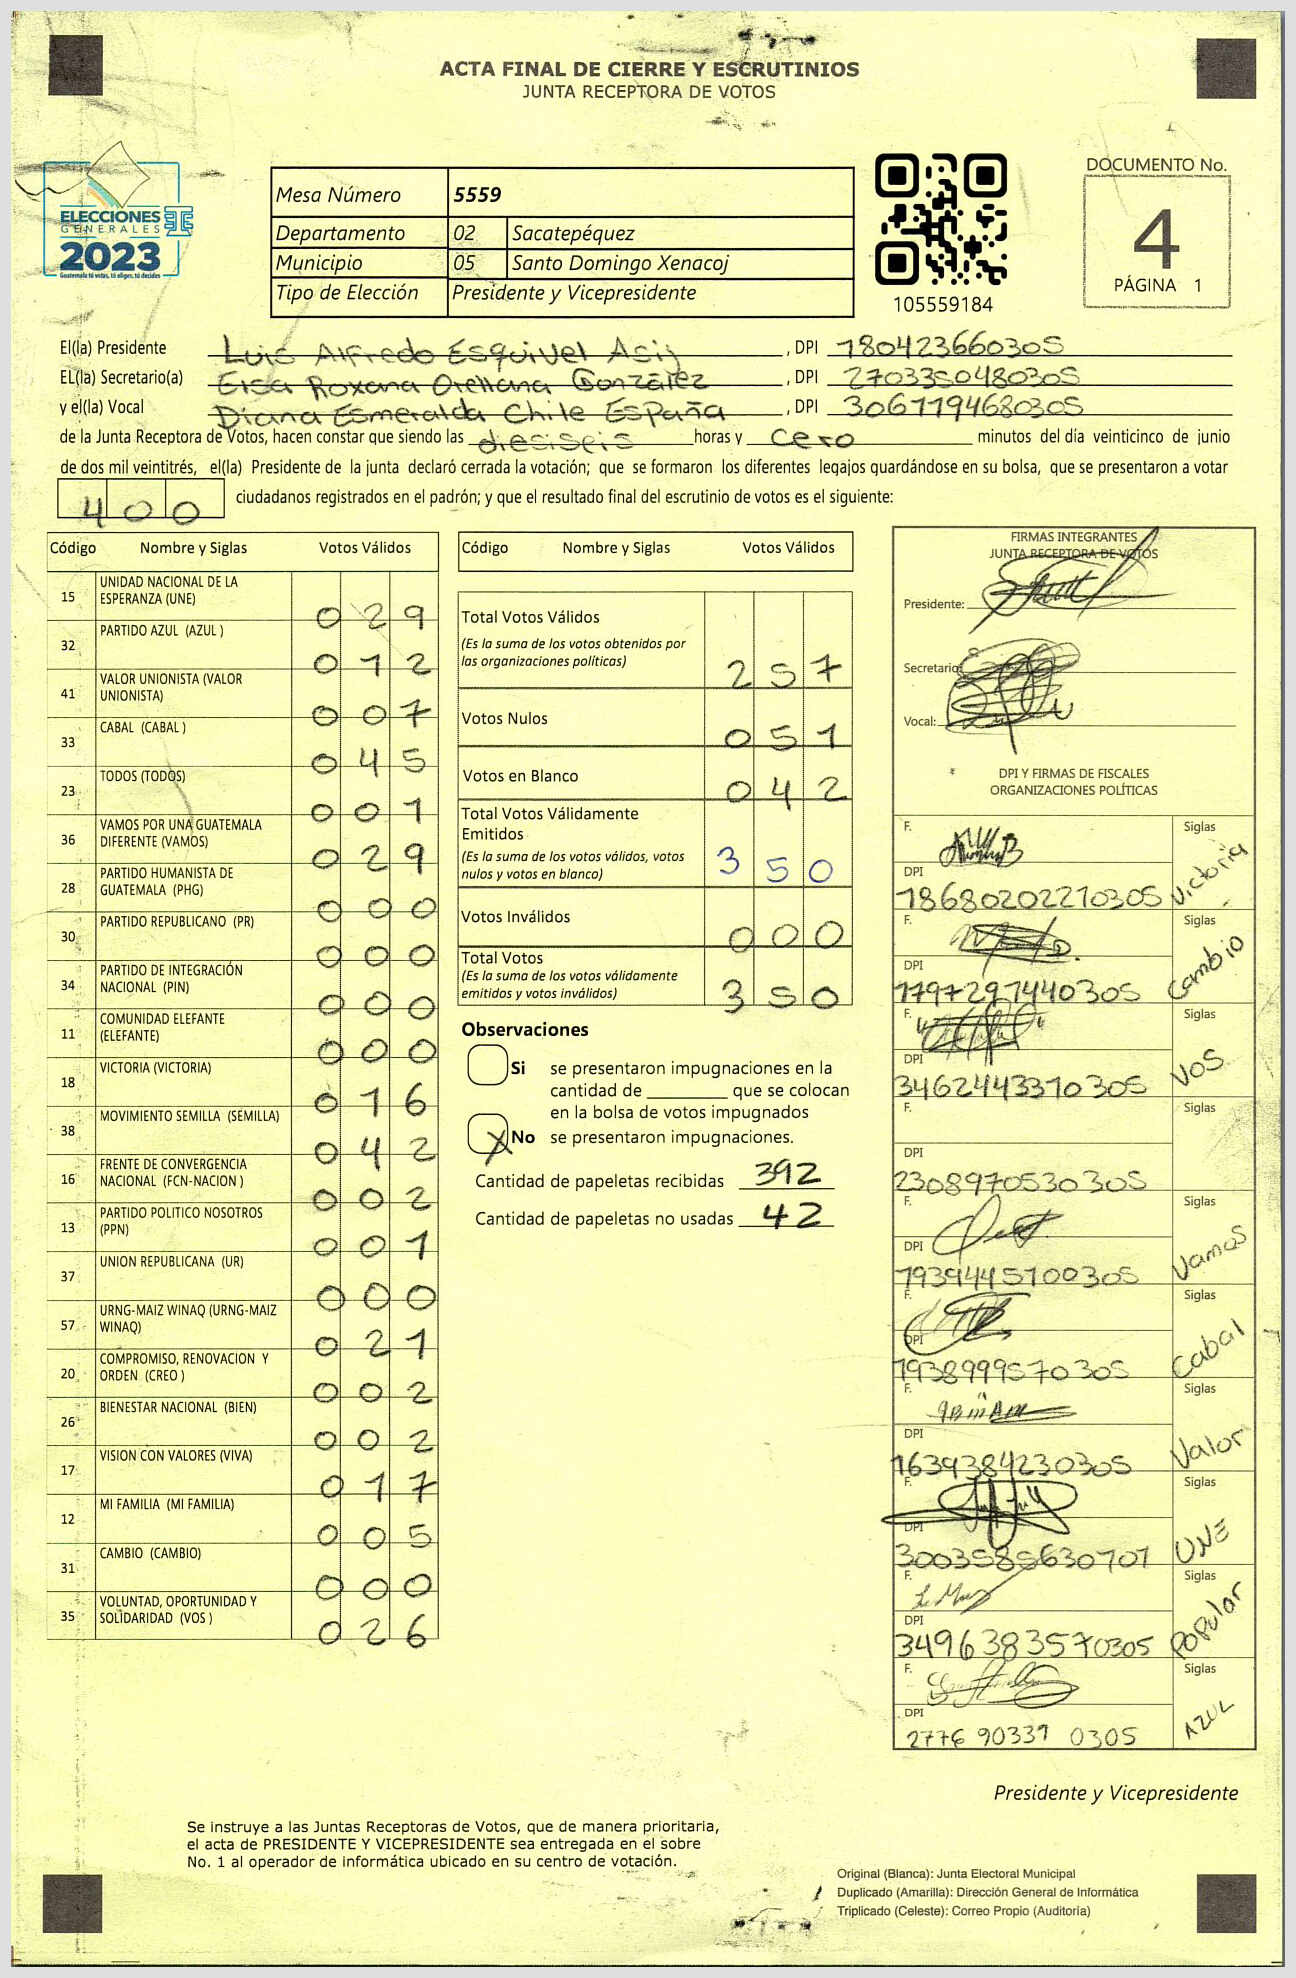 ACTA FINAL DE CIERRE Y ESCRUTINIOS
JUNTA RECEPTORA DE VOTOS
ELECCIONES
GENERALES
2023
Guatemala tú votas, tú eliges, tú decides
Mesa Número 5559
Departamento 02 Sacatepéquez
Municipio 05 Santo Domingo Xenacoj
Tipo de Elección Presidente y Vicepresidente
105559184
DOCUMENTO No.
4
PÁGINA 1
El(la) Presidente Luis Alfredo Esquivel Asij, DPI 1804236660305
EL(la) Secretario(a) Elsa Roxana Orellana González, DPI 2703350480305
y el(la) Vocal Diana Esmeralda Chile España, DPI 3061194680305
de la Junta Receptora de Votos, hacen constar que siendo las dieciseis horas y cero minutos del día veinticinco de junio
de dos mil veintitrés, el(la) Presidente de la junta declaró cerrada la votación; que se formaron los diferentes legajos guardándose en su bolsa, que se presentaron a votar
400 ciudadanos registrados en el padrón; y que el resultado final del escrutinio de votos es el siguiente:
Código Nombre y Siglas Votos Válidos
15 UNIDAD NACIONAL DE LA ESPERANZA (UNE) 029
32 PARTIDO AZUL (AZUL ) 012
41 VALOR UNIONISTA (VALOR UNIONISTA) 007
33 CABAL (CABAL ) 045
23 TODOS (TODOS) 001
36 VAMOS POR UNA GUATEMALA DIFERENTE (VAMOS) 029
28 PARTIDO HUMANISTA DE GUATEMALA (PHG) 000
30 PARTIDO REPUBLICANO (PR) 000
34 PARTIDO DE INTEGRACIÓN NACIONAL (PIN) 000
11 COMUNIDAD ELEFANTE (ELEFANTE) 000
18 VICTORIA (VICTORIA) 016
38 MOVIMIENTO SEMILLA (SEMILLA) 042
16 FRENTE DE CONVERGENCIA NACIONAL (FCN-NACION ) 002
13 PARTIDO POLITICO NOSOTROS (PPN) 001
37 UNION REPUBLICANA (UR) 000
57 URNG-MAIZ WINAQ (URNG-MAIZ WINAQ) 021
20 COMPROMISO, RENOVACION Y ORDEN (CREO ) 002
26 BIENESTAR NACIONAL (BIEN) 002
17 VISION CON VALORES (VIVA) 017
12 MI FAMILIA (MI FAMILIA) 005
31 CAMBIO (CAMBIO) 000
35 VOLUNTAD, OPORTUNIDAD Y SOLIDARIDAD (VOS ) 026
Código Nombre y Siglas Votos Válidos
Total Votos Válidos 257
(Es la suma de los votos obtenidos por
las organizaciones políticas)
Votos Nulos 051
Votos en Blanco 042
Total Votos Válidamente
Emitidos 350
(Es la suma de los votos válidos, votos
nulos y votos en blanco)
Votos Inválidos 000
Total Votos 350
(Es la suma de los votos válidamente
emitidos y votos inválidos)
Observaciones
Si se presentaron impugnaciones en la
cantidad de ________ que se colocan
en la bolsa de votos impugnados
X No se presentaron impugnaciones.
Cantidad de papeletas recibidas 392
Cantidad de papeletas no usadas 42
FIRMAS INTEGRANTES
JUNTA RECEPTORA DE VOTOS
Presidente:
Secretario:
Vocal:
DPI Y FIRMAS DE FISCALES
ORGANIZACIONES POLÍTICAS
F. Siglas Victoria
DPI 18680202210305
F. Siglas Cambio
DPI 1797297440305
F. Siglas VOS
DPI 3462443370305
F. Siglas
DPI 2308970530305
F. Siglas Vamos
DPI 1939445100305
F. Siglas Cabal
DPI 1938999570305
F. Siglas Valor
DPI 1639384230305
F. Siglas UNE
DPI 3003585630101
F. Siglas Popular
DPI 3496383570305
F. Siglas AZUL
DPI 2776 90331 0305
Presidente y Vicepresidente
Se instruye a las Juntas Receptoras de Votos, que de manera prioritaria,
el acta de PRESIDENTE Y VICEPRESIDENTE sea entregada en el sobre
No. 1 al operador de informática ubicado en su centro de votación.
Original (Blanca): Junta Electoral Municipal
Duplicado (Amarilla): Dirección General de Informática
Triplicado (Celeste): Correo Propio (Auditoría)